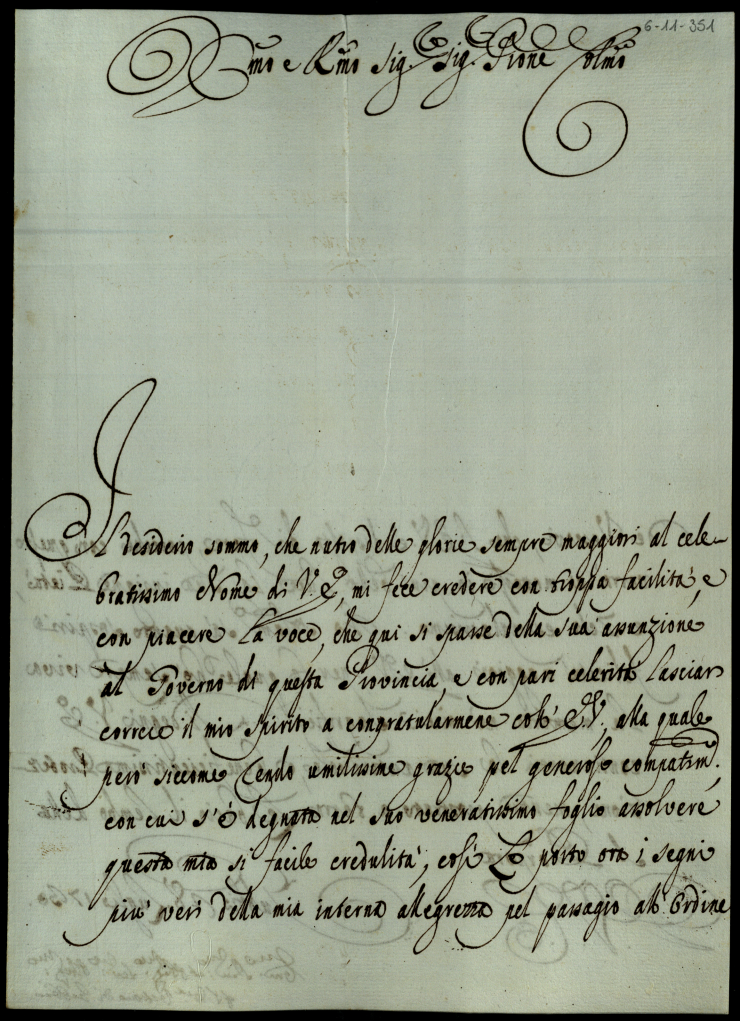 6-11-351
Emo e Rmo Sig. Sig. Prone Colmo
Il desiderio sommo, che nutro delle glorie sempre maggiori al cele-
bratissimo Nome di V. E., mi fece credere con troppa facilità, e
con piacere la voce, che qui si sparse della sua assunzione
al Governo di questa Provincia, e con pari celerità lasciar
correre il mio spirito a congratularmene coll' E. V., alla quale
però siccome rendo umilissime grazie pel generoso compatimo.
con cui s'è degnata nel suo veneratissimo foglio assolvere
questa mia sì facile credulità, così Le porto ora i segni
più veri della mia interna allegrezza pel passagio all' Ordine